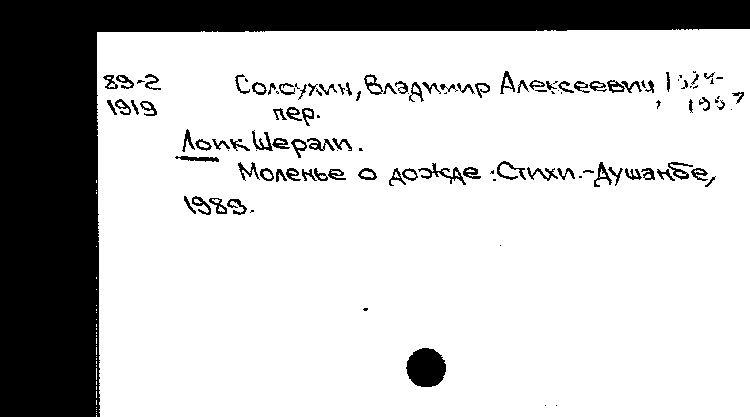 89-2 Солоухин, Владимир Алексеевич, 1924-
1919 пер. 1997
Лоик Шерали.
Моленье о дожде: Стихи.-Душанбе,
1989.